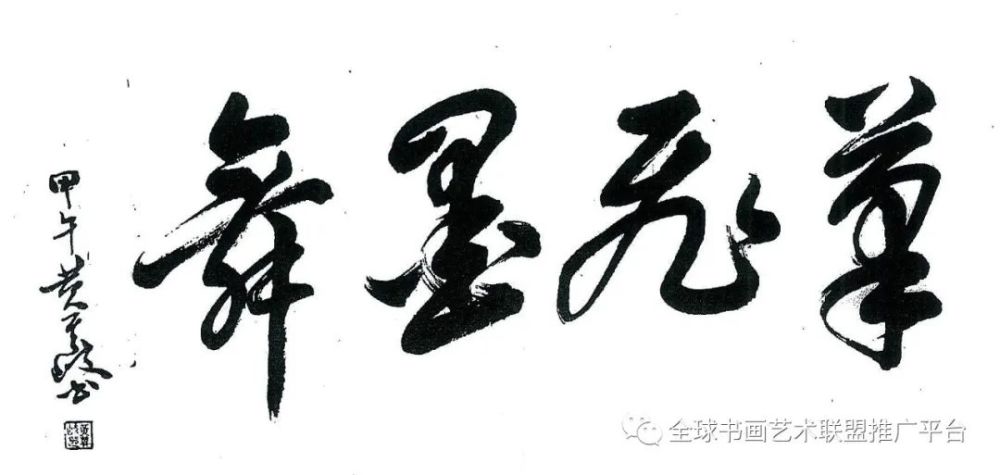 筆飛墨舞
甲午黄书
全球书画艺术联盟推广平台